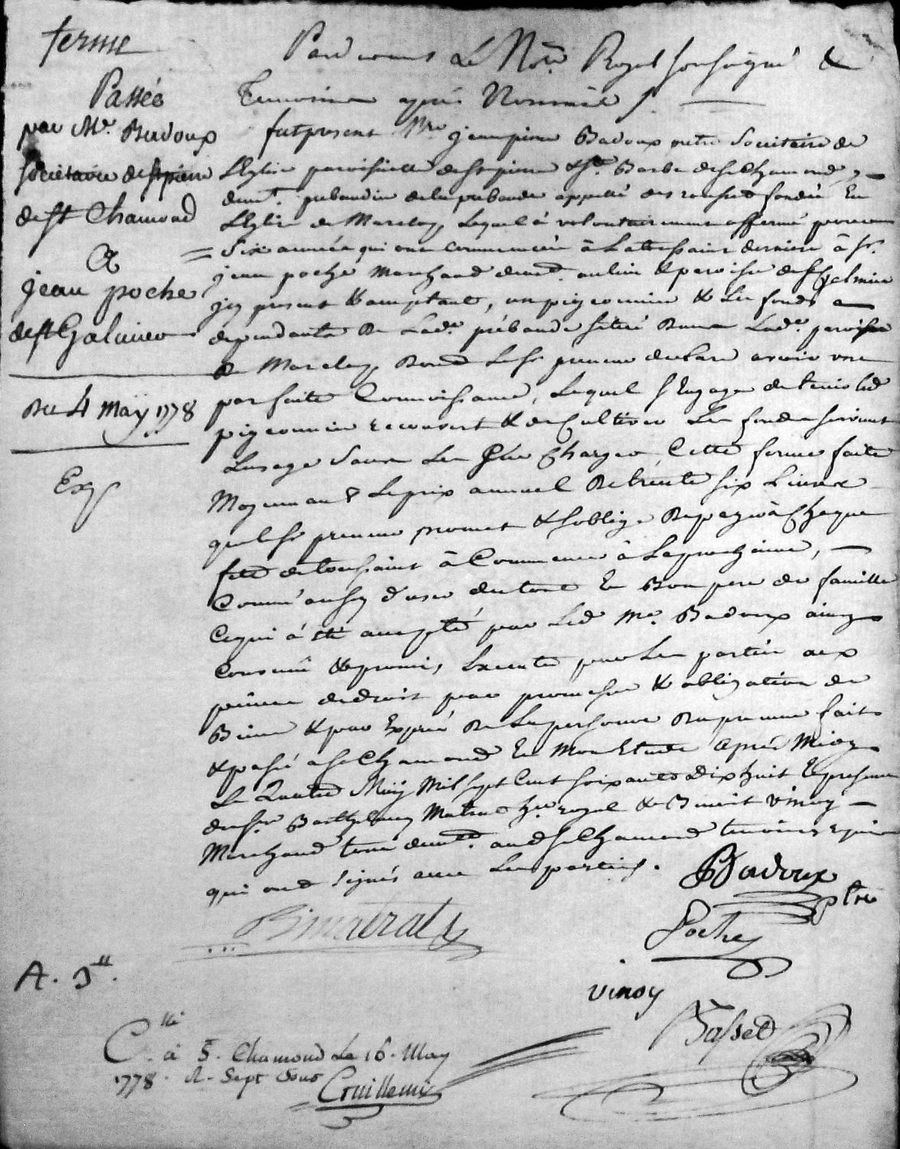 ferme
Passée
par Mr. Badoux
sociétaire de st pierre
de st Chamond
A
jean poche
de st Galmier
Du 4 May 1778
Exp
Pardevant Le Nore. Royal soussigné &
Temoins après Nommés
fut present Mre jean pierre Badoux pretre Societaire de
L'Eglise parroissielle de st pierre & ste Barbe de st Chamond y
demt. prebandier de la prebande appellé des fondé En
L'Eglise de Marclop Lequel à volontairement affermé pour
six années qui ont commencée à La toussaint derniere à sr.
jean poche Marchand demt. au lieu & paroisse de st Galmier
icy present & acceptant, un pigeonnier & Les fonds
dependants De Lade. prébande situé Dans Lade. paroisse
de Marclop Dont Le sr preneur declare avoir une
parfaite Connoissance, Lequel s'Engage de tenir led
pigeonnier recouvert & de Cultiver Les fonds suivant
L'usage sans Les Charger Cette ferme faite
Moyennant Le prix annuel De trente six Livres
que le sr preneur promet & s'oblige De payer à Chaque
fete de toussaint à Commencer à La prochaine,
Comm'aussy d'user du tout En Bon pere de famille
Ce qui à été accepté par Led Mre. Badoux ainsy
Convenu & promis Executer par Les parties aux
peines de droit par promesse & obligation de
Biens & par Exprès De La personne Du preneur fait
& passé a st Chamond En Mon Etude après Midy
Le Quatre May Mil sept Cent soixante dix huit En presence
de sr. Barthelemy Matrat royal & Benoit vinoy
Marchand demt. aud st Chamond temoins requis
qui ont signés avec Les parties.
Badoux
ptre
Bmatrat
Poche
vinoy
Basset
A. 3tt.
Clé à S. Chamond Le 16. May
1778. R. Sept sous
Cruillemi